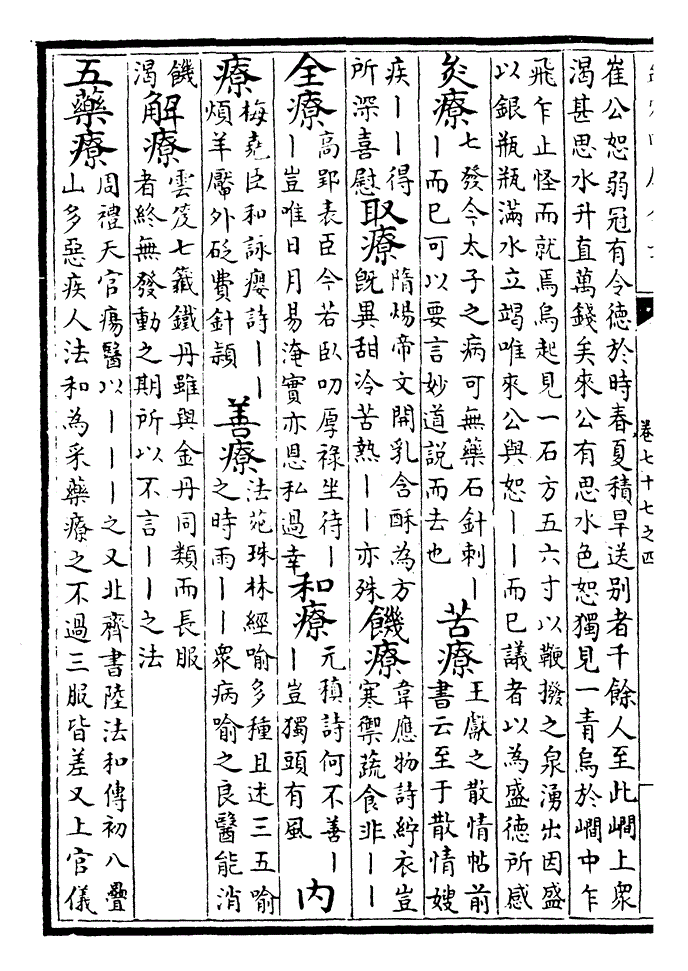 崔公恕弱冠有令德於時春夏積旱送別者千餘人至此㵎上衆
渴甚思水升直萬錢矣來公有思水色恕獨見一青烏於㵎中乍
飛乍止怪而就焉烏起見一石方五六寸以鞭撥之泉湧出因盛
以銀瓶瓶滿水立竭唯來公與恕丨丨而已議者以為盛德所感
炙療
七發今太子之病可無藥石針刺丨
丨而已可以要言妙道說而去也
苦療
王獻之散情帖前
書云至于散情嫂
疾丨丨得
所深喜慰
取療
隋煬帝文開乳含酥為方
既異甜冷苦熱丨丨亦殊
饑療
韋應物詩紵衣豈
寒禦蔬食非丨丨
全療
高郢表臣今若臥叨厚祿坐待丨
丨豈唯日月易淹實亦恩私過幸
和療
元稹詩何不善丨
丨豈獨頭有風
內
療
梅堯臣和詠癭詩丨丨
煩羊靨外砭費針潁
善療
法苑珠林經喻多種且述三五喻
之時雨丨丨衆病喻之良醫能消
饑
渴
解療
雲笈七籤鐵丹雖與金丹同類而長服
者終無發動之期所以不言丨丨之法
五藥療
周禮天官瘍醫以丨丨丨之又北齊書陸法和傳初八疊
山多惡疾人法和為采藥療之不過三服皆差又上官儀
卷七十七之四